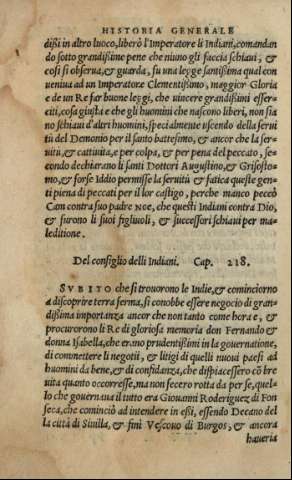 HISTORIA GENERALE
dißi in altro luoco, liberò l'Imperatore li Indiani, comandan
do sotto grandißime pene che niuno gli faccia schiaui, &
cosi si obserua, & guarda, fu una legge santißima qual con
ueniua ad un Imperatore Clementißimo, maggior Gloria
e de un Re far buone leggi, che uincere grandißimi esser-
citi, cosa giusta e che gli huomini che nascono liberi, non sia
no schiaui d'altri huomini, specialmente uscendo della serui
tù del Demonio per il santo battesmo, & ancor che la ser-
uitù, & cattiuita, e per colpa, & per pena del peccato, se-
condo dechiarano li santi Dottori Augustino, & Grisosto-
mo, & forse Iddio permisse la seruitù & fatica queste gen
ti piena di peccati per il lor castigo, perche manco peccò
Cam contra suo padre NOE, che questi Indiani contra Dio,
& furono li suoi figliuoli, & successori schiaui per ma-
leditione.
Del consiglio delli Indiani. Cap. 218.
SVBITO che si trouorono le Indie, & cominciorno
a discoprire terra ferma, si conobbe essere negocio di gran
dißima importanza ancor che non tanto come hora e, &
procurorono li Re di gloriosa memoria don Fernando &
donna Isabella, che erano prudentißimi in la gouernatione,
di commettere li negotii, & litigi di quelli nuoui paesi ad
huomini da bene, & di confidanza, che dispiacessero cõ bre
uita quanto occorresse, ma non fecero rotta da per se, quel-
lo che gouernaua il tutto era Giouanni Roderiguez di Fon
seca, che cominciò ad intendere in eßi, essendo Decano del
la città di Siuilla, & finì Vescouo di Burgos, & ancora
haueria